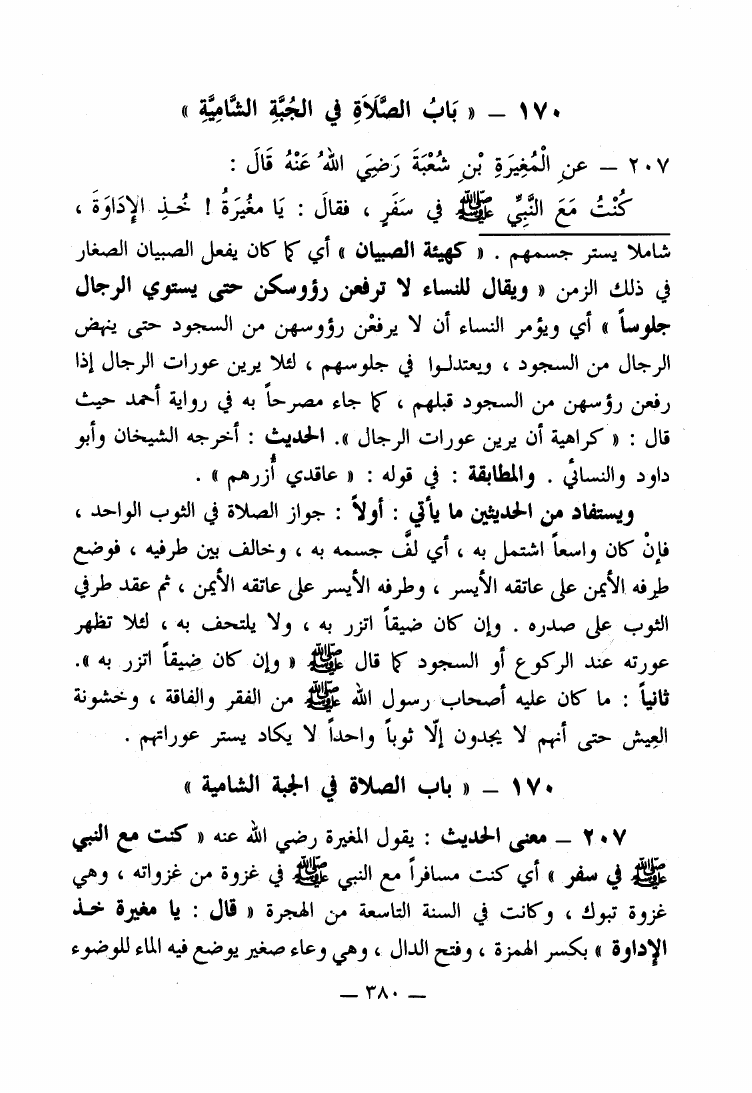 ١٧٠ – « بَابُ الصَّلَاَةِ في الجُبَّةِ الشَّامِيَّةِ »
٢٠٧ – عنِ الْمُغِيرَةِ بْنِ شُعْبَةَ رَضِيَ اللهُ عَنْهُ قَالَ :
كُنْتُ مَعَ النَّبِيِّ ﷺ في سَفَرٍ ، فقالَ : يَا مغُيَرَةُ ! خُـذِ الإِدَاوَةَ ،
شاملا يستر جسمهم . « كهيئة الصبيان » أي كما كان يفعل الصبيان الصغار
في ذلك الزمن « ويقال للنساء لا ترفعن رؤوسكن حتى يستوي الرجال
جلوساً » أي ويؤمر النساء أن لا يرفعْن رؤوسهن من السجود حتى ينهض
الرجال من السجود ، ويعتدلـوا في جلوسهم ، لئلا يرين عورات الرجال إذا
رفعن رؤسهن من السجود قبلهم ، كما جاء مصرحاً به في رواية أحمد حيث
قال : « كراهية أن يرين عورات الرجال ». الحديث : أخرجه الشيخان وأبو
داود والنسائي . والمطابقة : في قوله : « عاقدي أُزرهم » .
ويستفاد من الحديثين ما يأتي : أولاً : جواز الصلاة في الثوب الواحد ،
فإنْ كان واسعاً اشتمل به ، أي لفَّ جسمه به ، وخالف بين طرفيه ، فوضع
طرفه الأيمن على عاتقه الأيسر ، وطرفه الأيسر على عاتقه الأيمن ، ثم عقد طرفي
الثوب على صدره . وإن كان ضيقاً اتزر به ، ولا يلتحف به ، لئلا تظهر
عورته عند الركوع أو السجود كما قال ﷺ « وإن كان ضيقاً اتزر به ».
ثانياً : ما كان عليه أصحاب رسول الله ﷺ من الفقر والفاقة ، وخشونة
العيش حتى أنهم لا يجدون إلّا ثوباً واحداً لا يكاد يستر عوراتهم .
١٧٠ – « باب الصلاة في الجبة الشامية »
٢٠٧ – معنى الحديث : يقول المغيرة رضي الله عنه « كنت مع النبي
ﷺ في سفر » أي كنت مسافراً مع النبي ﷺ في غزوة من غزواته ، وهي
غزوة تبوك ، وكانت في السنة التاسعة من الهجرة « قال : يا مغيرة خـذ
الإداوة » بكسر الهمزة ، وفتح الدال ، وهي وعاء صغير يوضع فيه الماء للوضوء
– ٣٨٠ –